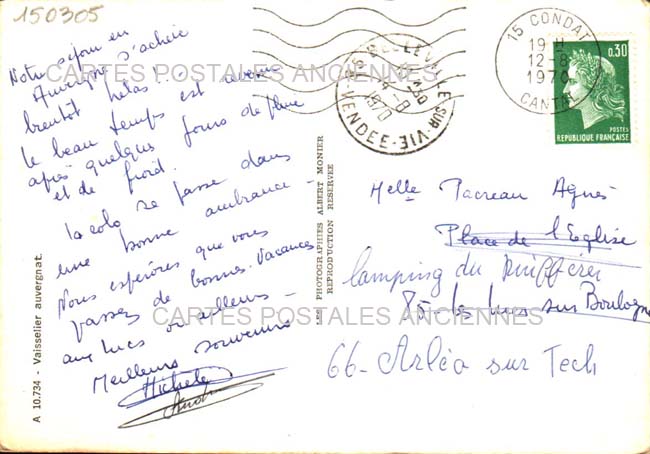 150305
Notre séjour en
Auvergne s'achève
bientôt hélas...
Le beau temps est revenu
après quelques jours de pluie
et de froid.
La colo se passe dans
une bonne ambiance.
Nous espérons que vous
passez de bonnes vacances
aux Lucs ou ailleurs -
Meilleurs souvenirs
Michele
A 10.734 - Vaisselier auvergnat.
LES PHOTOGRAPHIES ALBERT MONIER
REPRODUCTION RESERVEE
BELLEVILLE-SUR-VIE
VENDEE
1970
15 CONDAT
19 H
12-8
1970
CANTAL
0,30
POSTES
REPUBLIQUE FRANÇAISE
Melle Pacreau Agnès
Place de l'Eglise
Camping du
85-Les Lucs sur Boulogne
66-Arléa sur Tech
CARTES POSTALES ANCIENNES
CARTES POSTALES ANCIENNES